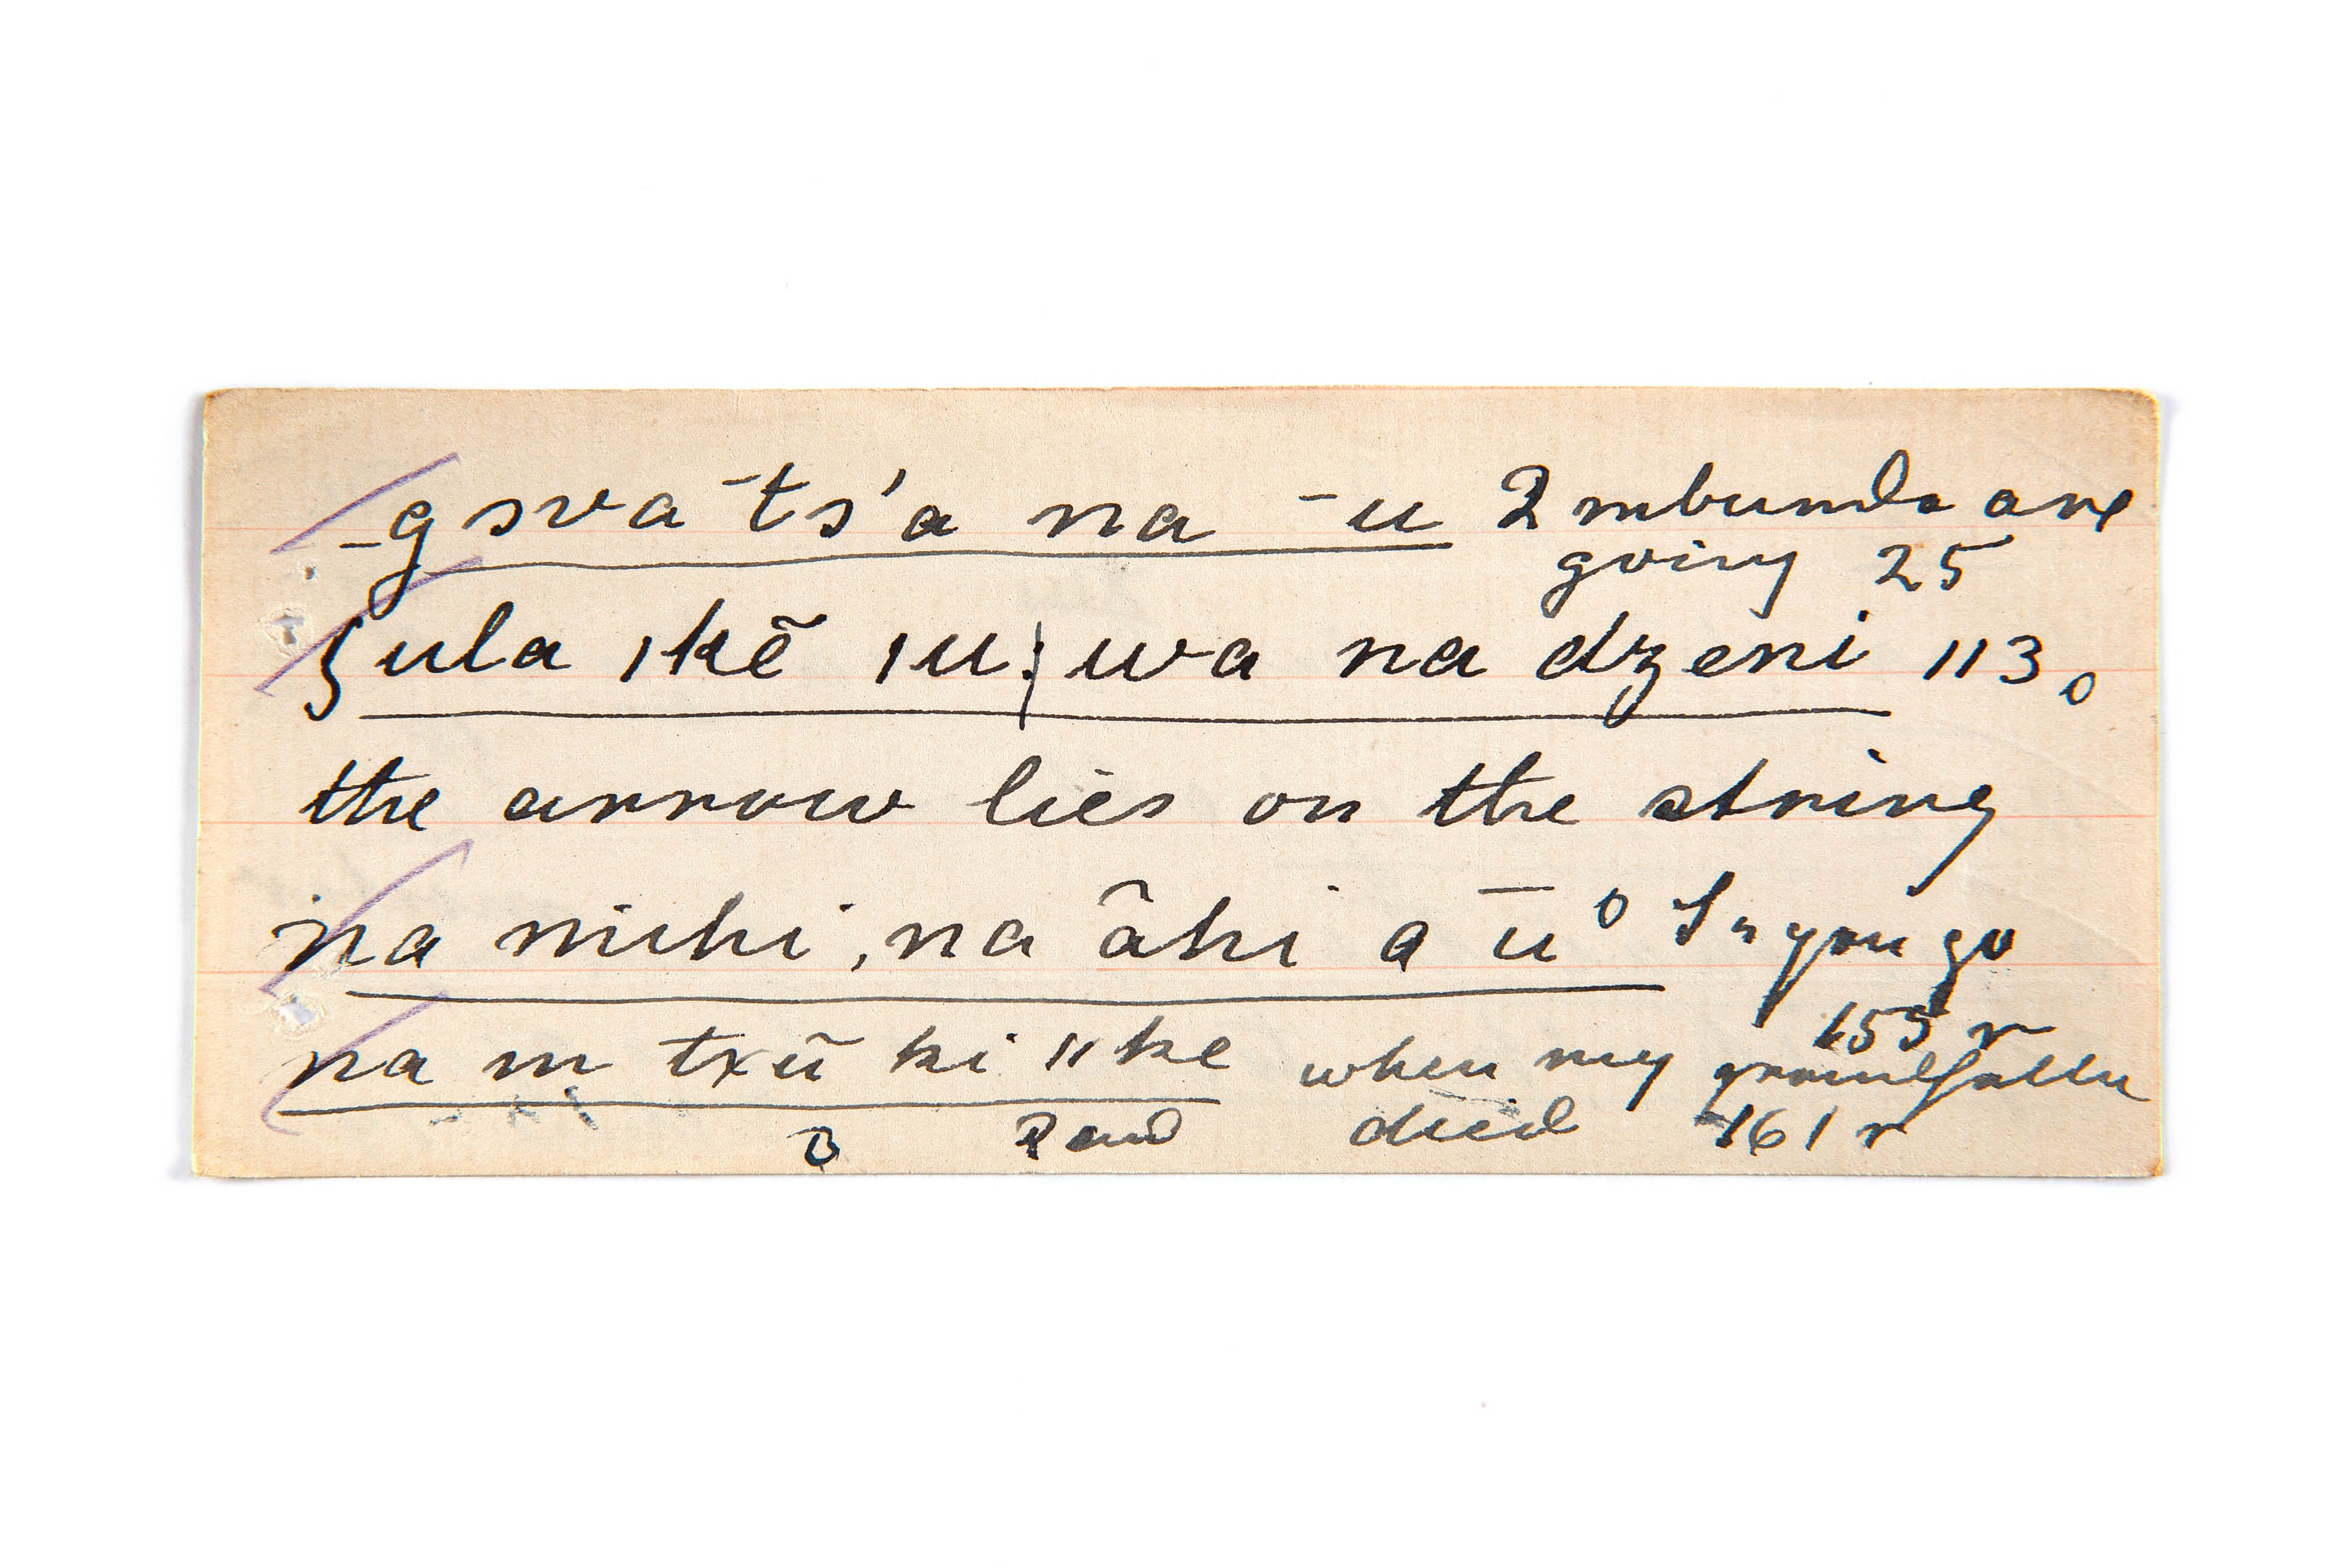 _gsva ̄ts'a na ̄u 2 mbunda are
going 25
ʃula ıkẽ ıu:|uva na dzeni 113 o
the arrow lies on the string
na mihi, na âhi a ū o you go
155 r
na m txū ki ııke when my grandfather
died 161 r